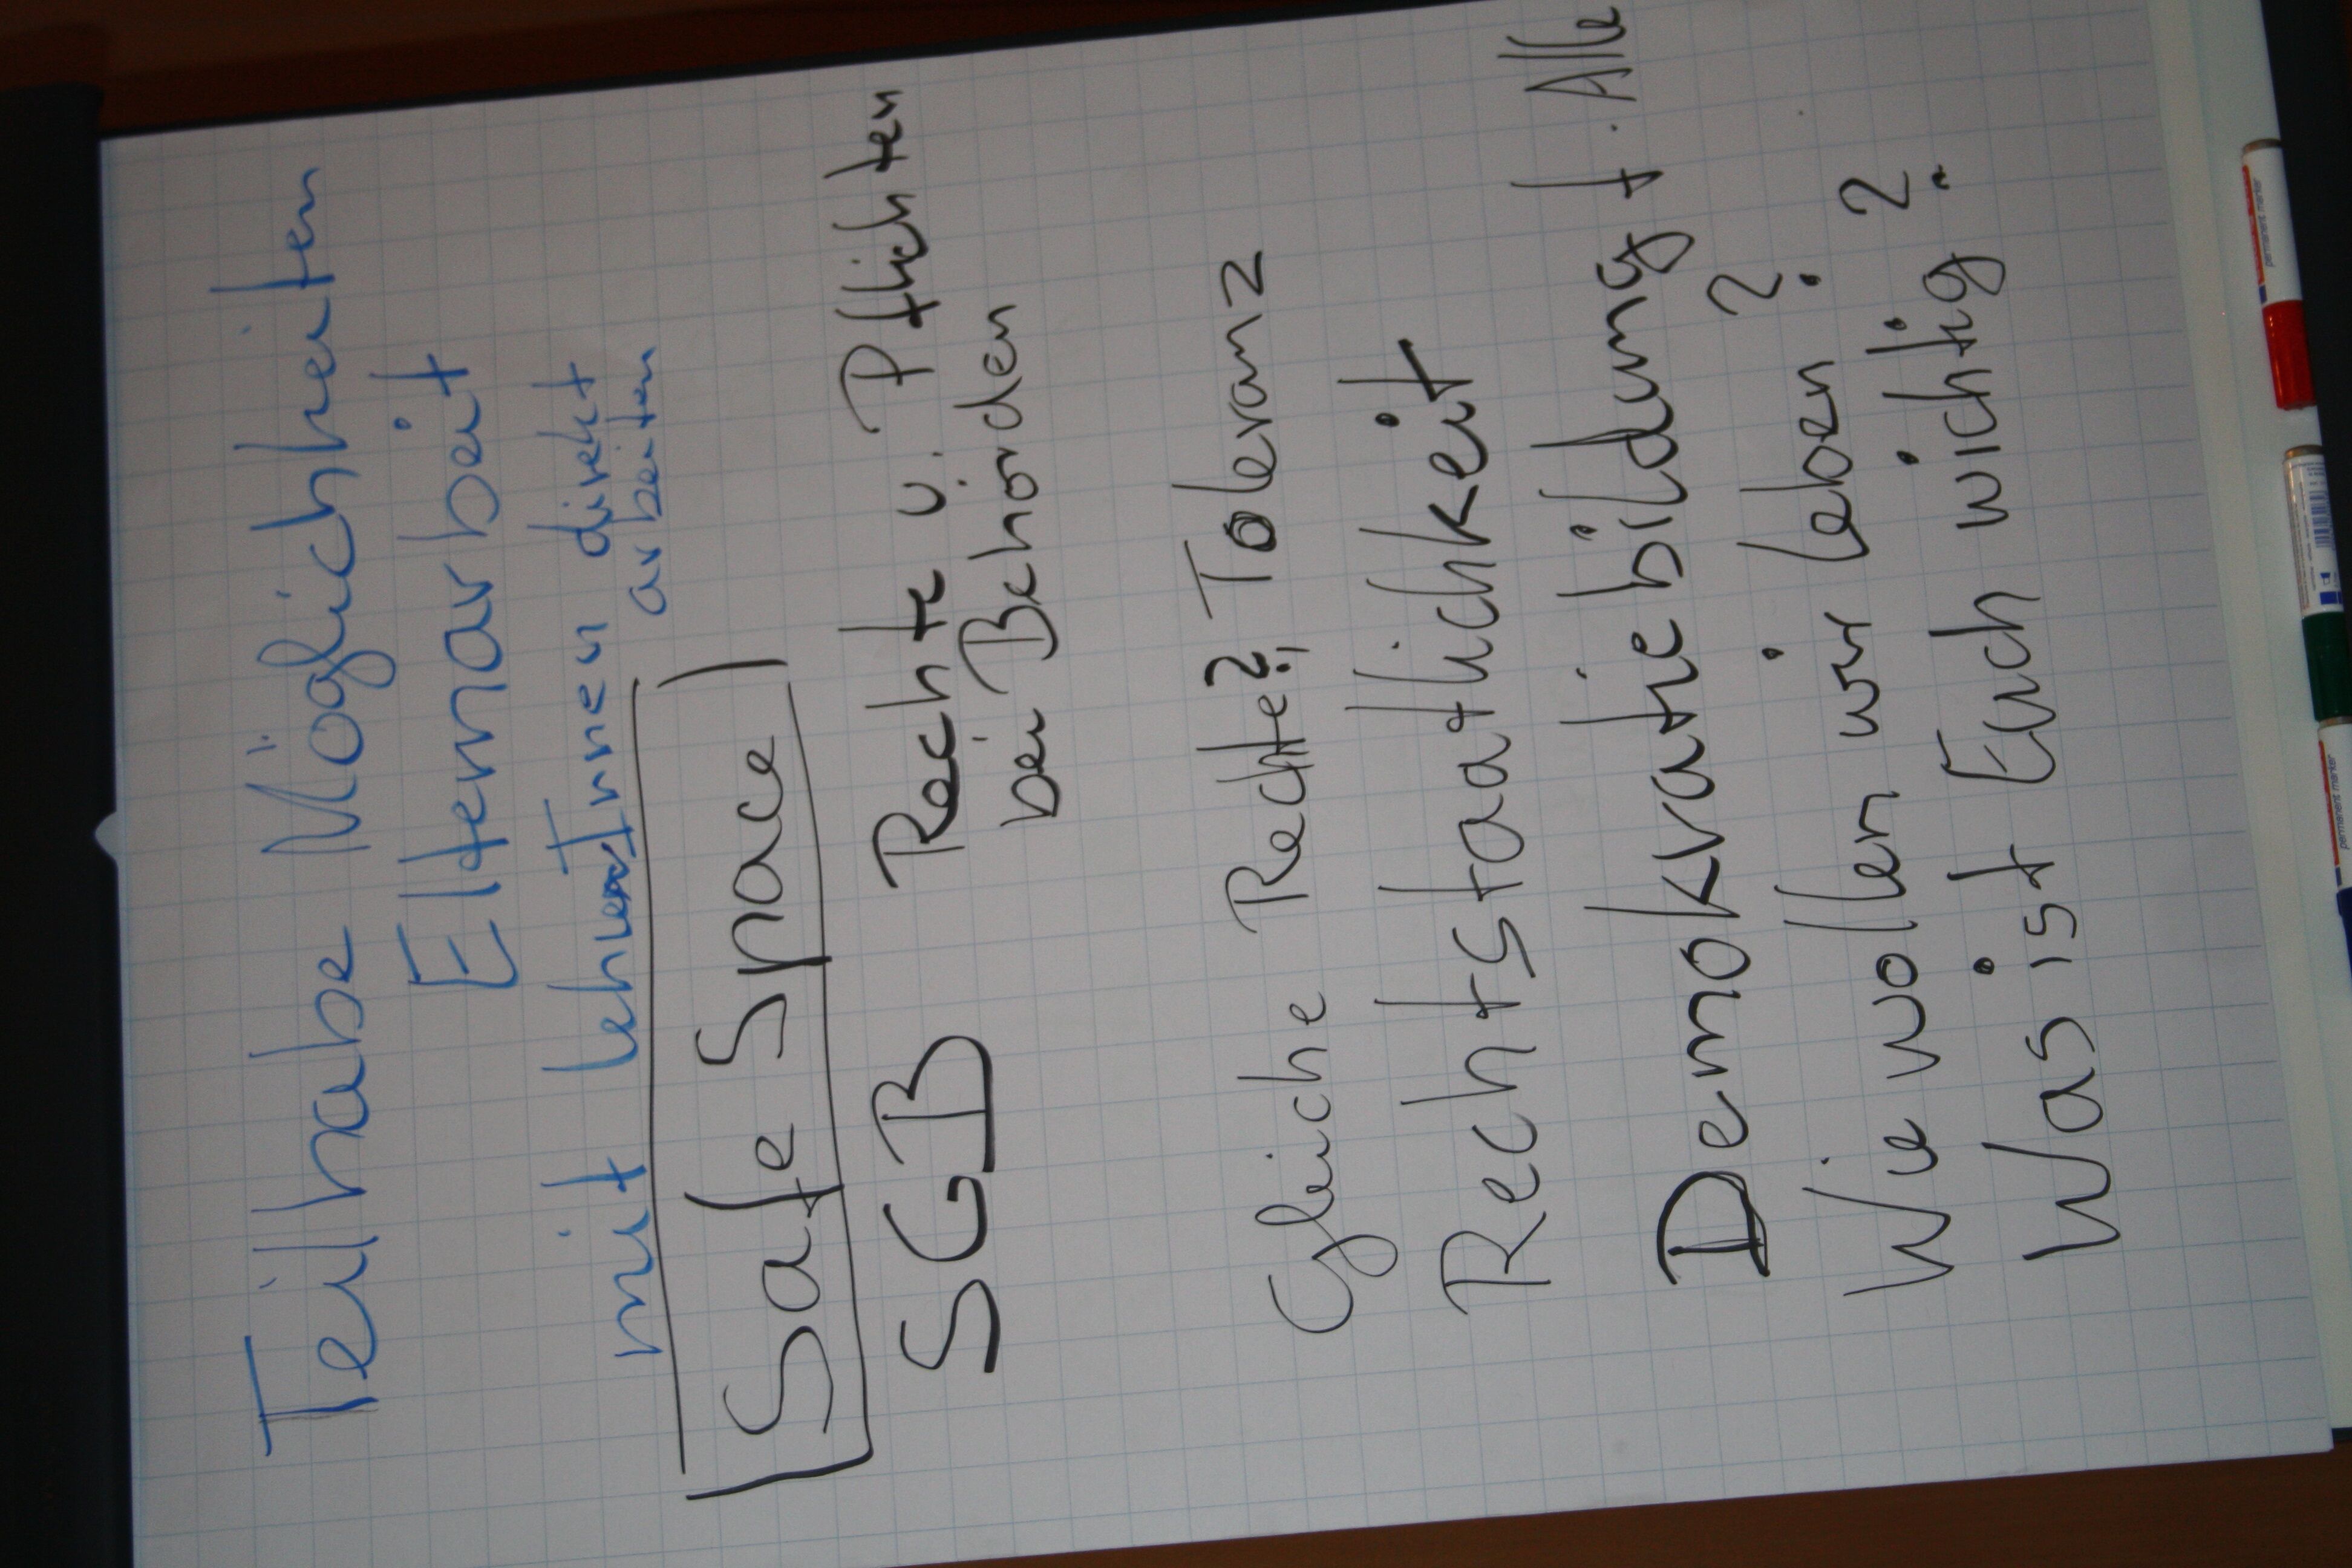 Teilhabe Möglichkeiten
Elternarbeit
mit LehrerInnen direkt
arbeiten
Safe Space
SGB Rechte u. Pflichten
bei Behörden
Gleiche Rechte?! Toleranz
Rechtstaatlichkeit
Demokratiebildung f. Alle
Wie wollen wir leben??
Was ist Euch wichtig?
permanent marker
permanent marker